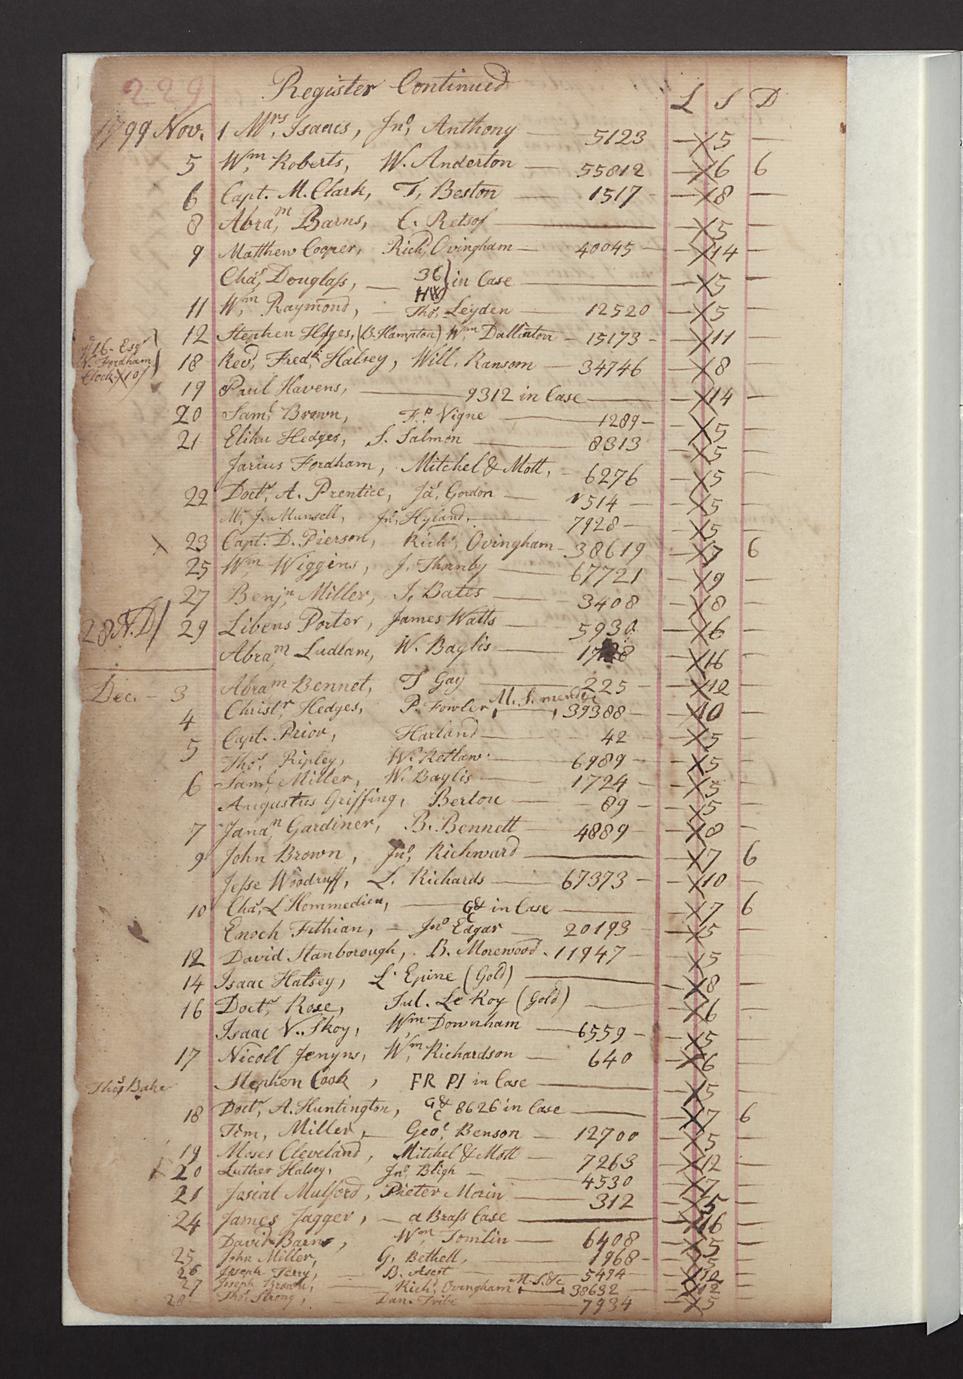 229 Register Continued L S D
1799 Nov. 1 Mrs Isaacs, Jno, Anthony — 5123 — 5 —
5 Wm Roberts, W. Anderton — 55812 — 6 6
6 Capt. M. Clark, T, Beston — 1517 — 8 —
8 Abram, Barns, C. Retsof — 5 —
9 Matthew Cooper, Rich, Ovingham — 40045 — 14 —
Chas, Douglass, — 36 HW in Case — 5 —
11 Wm, Raymond, — Thos, Leyden — 12520 — 5 —
12 Stephen Hedges, (B. Hampton) Wm Dallinton — 15173 — 11 —
16 - Esqr
N. Fordham
Clock X 10/
18 Revd, Fredk Halsey, Will, Ransom — 34746 — 8 —
19 Paul Havens, — 9312 in Case — 14 —
20 Saml Brown, Fs Vigne — 1289 — 5 —
21 Elihu Hedges, S. Salmon — 8313 — 5 —
Jarius Fordham, Mitchel & Mott, — 6276 — 5 —
22 Doctr, A. Prentice, Jas, Gordon — 1514 — 5 —
Mr J. Munsell, Jno, Hyland, — 7928 — 5 —
23 Capt. D. Pierson, Richd, Ovingham — 38619 — 7 6
25 Wm Wiggins, J. Thanby — 67721 — 9 —
27 Benjn, Miller, J. Bates — 3408 — 8 —
28 A. D/ 29 Libens Porter, James Watts — 5930 — 6 —
Abram Ludlam, W. Baglis — — 16 —
Dec. - 3 Abram Bennet, T Gay — 225 — 12 —
4 Christr Hedges, P. Fowler, M. S. mended, 39388 — 10 —
5 Capt. Prior, Harland — 42 — 5 —
Thos, Ripley, W. Rotlaw — 6989 — 5 —
6 Saml, Miller, W. Baylis — 1724 — 5 —
Augustus Griffing, Bertou — 89 — 5 —
7 Janan Gardiner, B. Bennett — 4889 — 8 —
9 John Brown, Jno, Richward — 7 6
Jesse Woodruff, L. Richards — 67373 — 10 —
10 Chas, L'Hommedieu, — G& C in Case — 7 6
Enoch Fithian, — Jno Edgar — 20193 — 5 —
12 David Stanborough, B. Morewood - 11947 — 5 —
14 Isaac Halsey, L'Epine (Gold) — 8 —
16 Doctr, Rose, Jul. Le Roy (Gold) — 6 —
Isaac V. Skoy, Wm Downham — 6559 — 5 —
17 Nicoll Jenyns, Wm, Richardson — 640 — 6 —
Thos Bake Stephen Cook, FR PI in Case — 5 —
18 Doctr, A. Huntington, G& C 8626 in Case — 7 6
Tim, Miller, — Geo, Benson — 12700 — 5 —
19 Moses Cleveland, Mitchel & Mott — 7263 — 12 —
20 Luther Halsey, Jno, Bligh — 4530 — 7 —
21 Josial Mulford, Pieter Morin — 312 — 5 —
24 James Jagger, — a Brass Case — 16 —
David Barns, Wm Tomlin — 6408 — 5 —
25 John Miller, G. Bethell, — 1968 — 5 —
26 Joseph Terry, — B. — 5494 — 12 —
27 Joseph Brown, — Richd, Ovingham M. S. &c, 38632 — 12 —
28 Thos Strong, Dan. — 7934 — 5 —